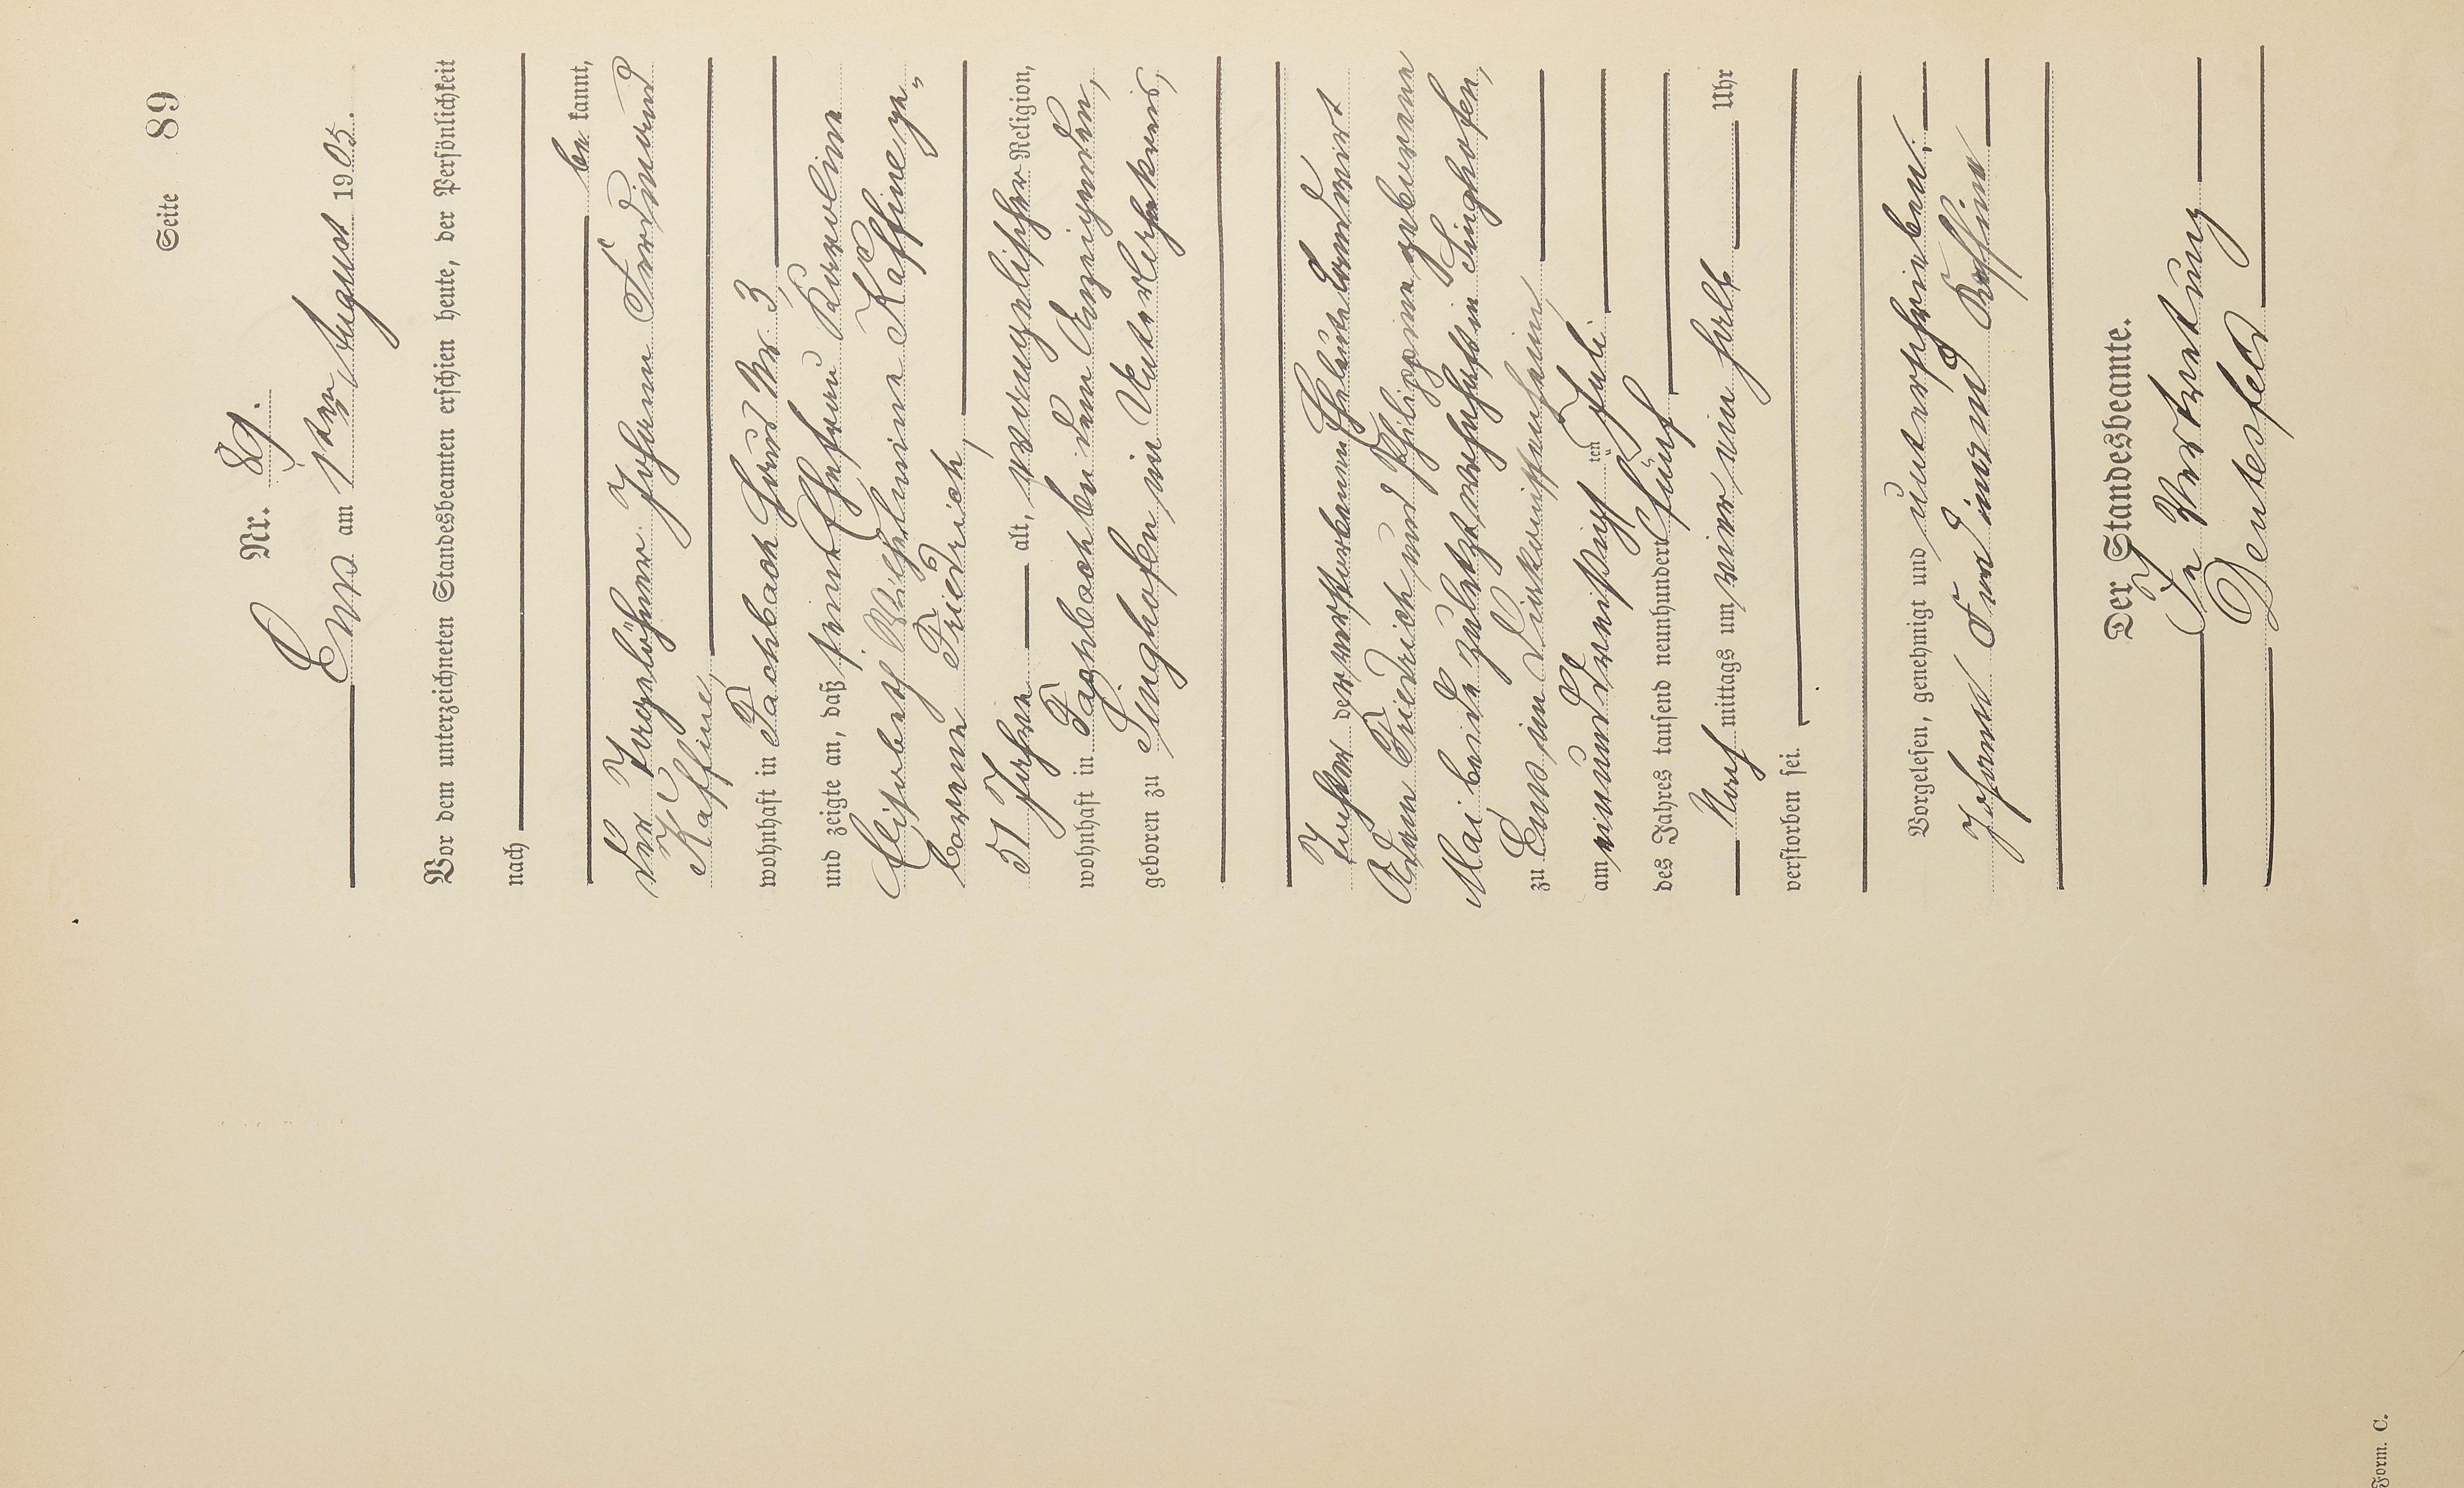 Seite 89
Nr. 89.
Ems am 1ten August 1905.
Vor dem unterzeichneten Standesbeamten erschien heute, der Persönlichkeit
nach
be kannt,
der Tagelöhner Johann Ferdinand
Kaffine,
wohnhaft in Fachbach Haus Nr. 3,
und zeigte an, daß seine Ehefrau Karoline
Elisabeth Wilhelmine Kaffine ge-
borene Friedrich,
51 Jahre alt, evangelischer Religion,
wohnhaft in Fachbach bei dem Anzeigenden,
geboren zu Singhofen im Unterlahnkreis,
Tochter der verstorbenen Eheleute Landwirt
Adam Friedrich und Philippine geborene
Mai, beide zuletzt wohnhaft in Singhofen,
zu Ems im Diakonissenheim,
am einunddreißigsten Juli
des Jahres tausend neunhundert fünf
Nach mittags um vier ein halb Uhr
verstorben sei.
Vorgelesen, genehmigt und unterschrieben.
Johann Ferdinand Kaffine
Der Standesbeamte.
In Vertretung
Form. C.